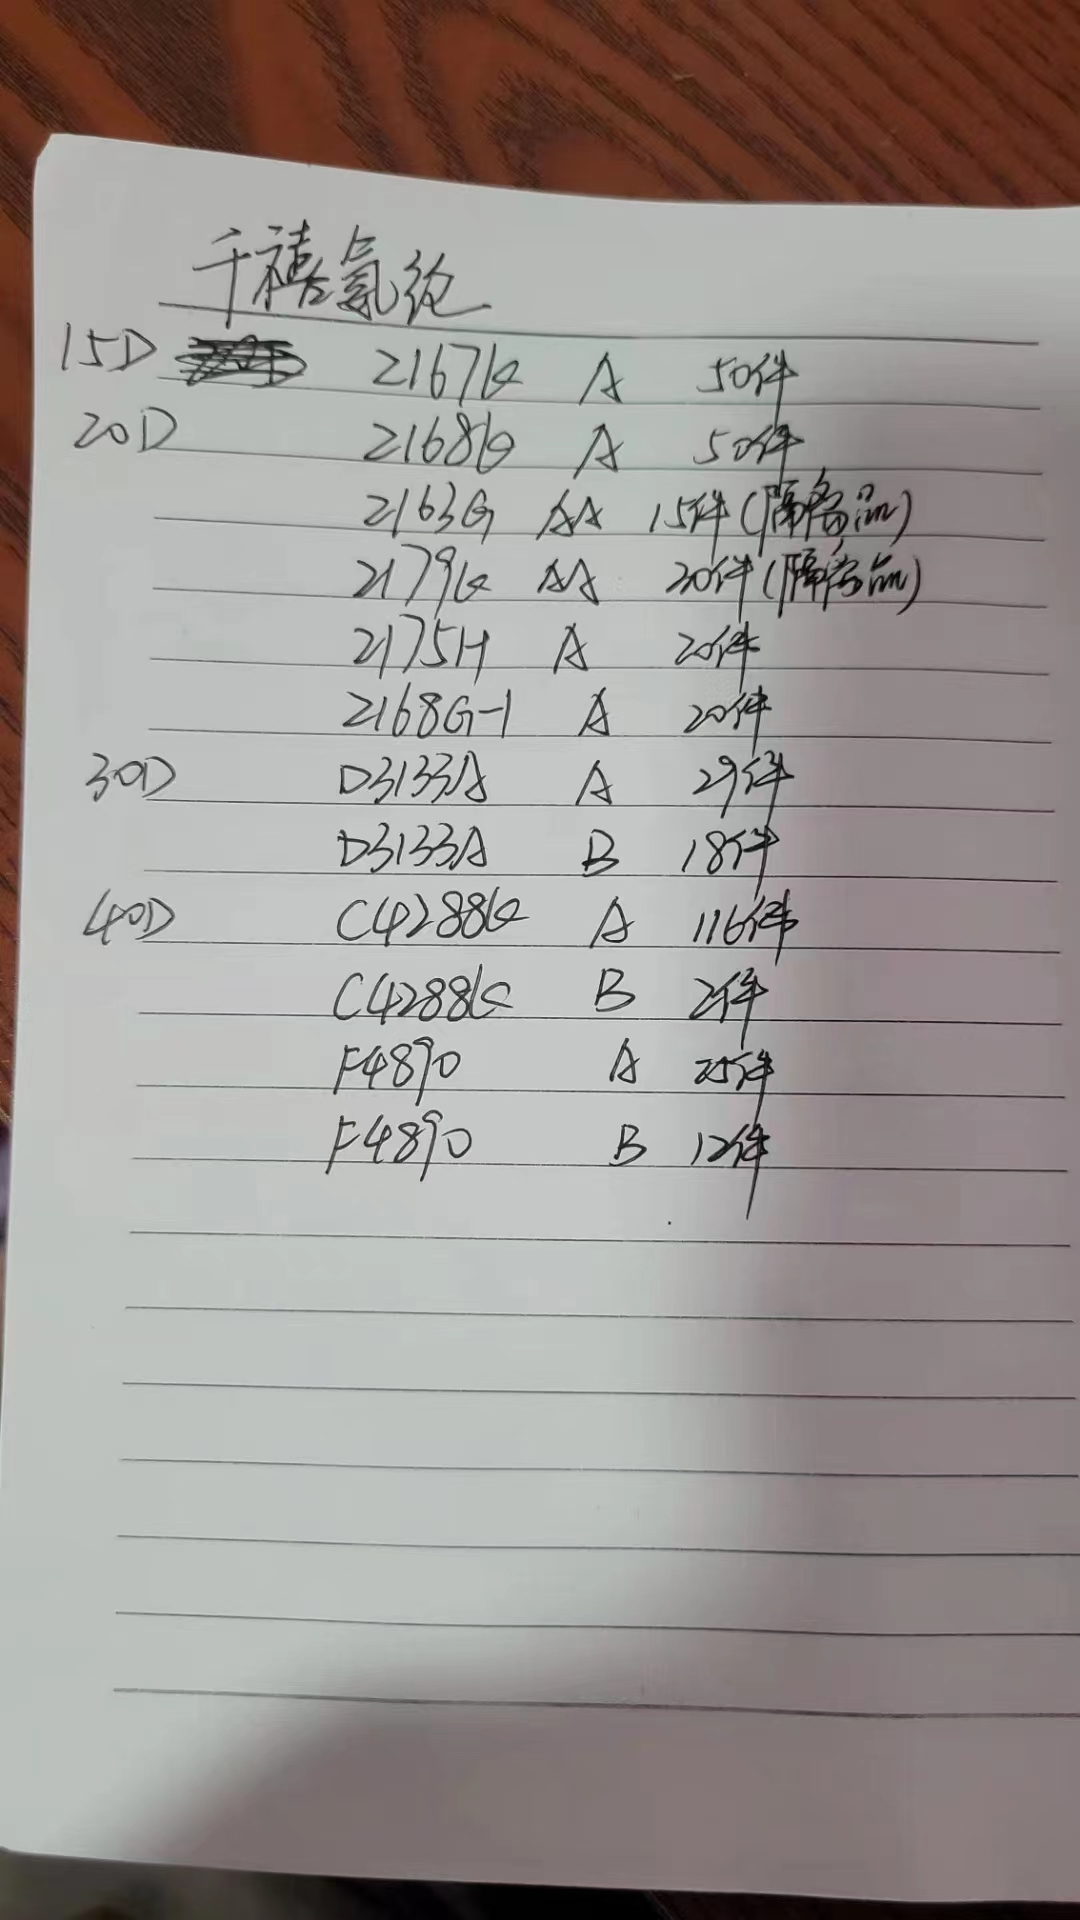 千禧氨纶
15D 2167G A 50件
20D 2168G A 50件
2163G AA 15件(隔离品)
2179G AA 30件(隔离品)
2175H A 20件
2168G-1 A 20件
30D D3133A A 29件
D3133A B 18件
40D C4288G A 116件
C4288G B 2件
F4890 A 25件
F4890 B 12件